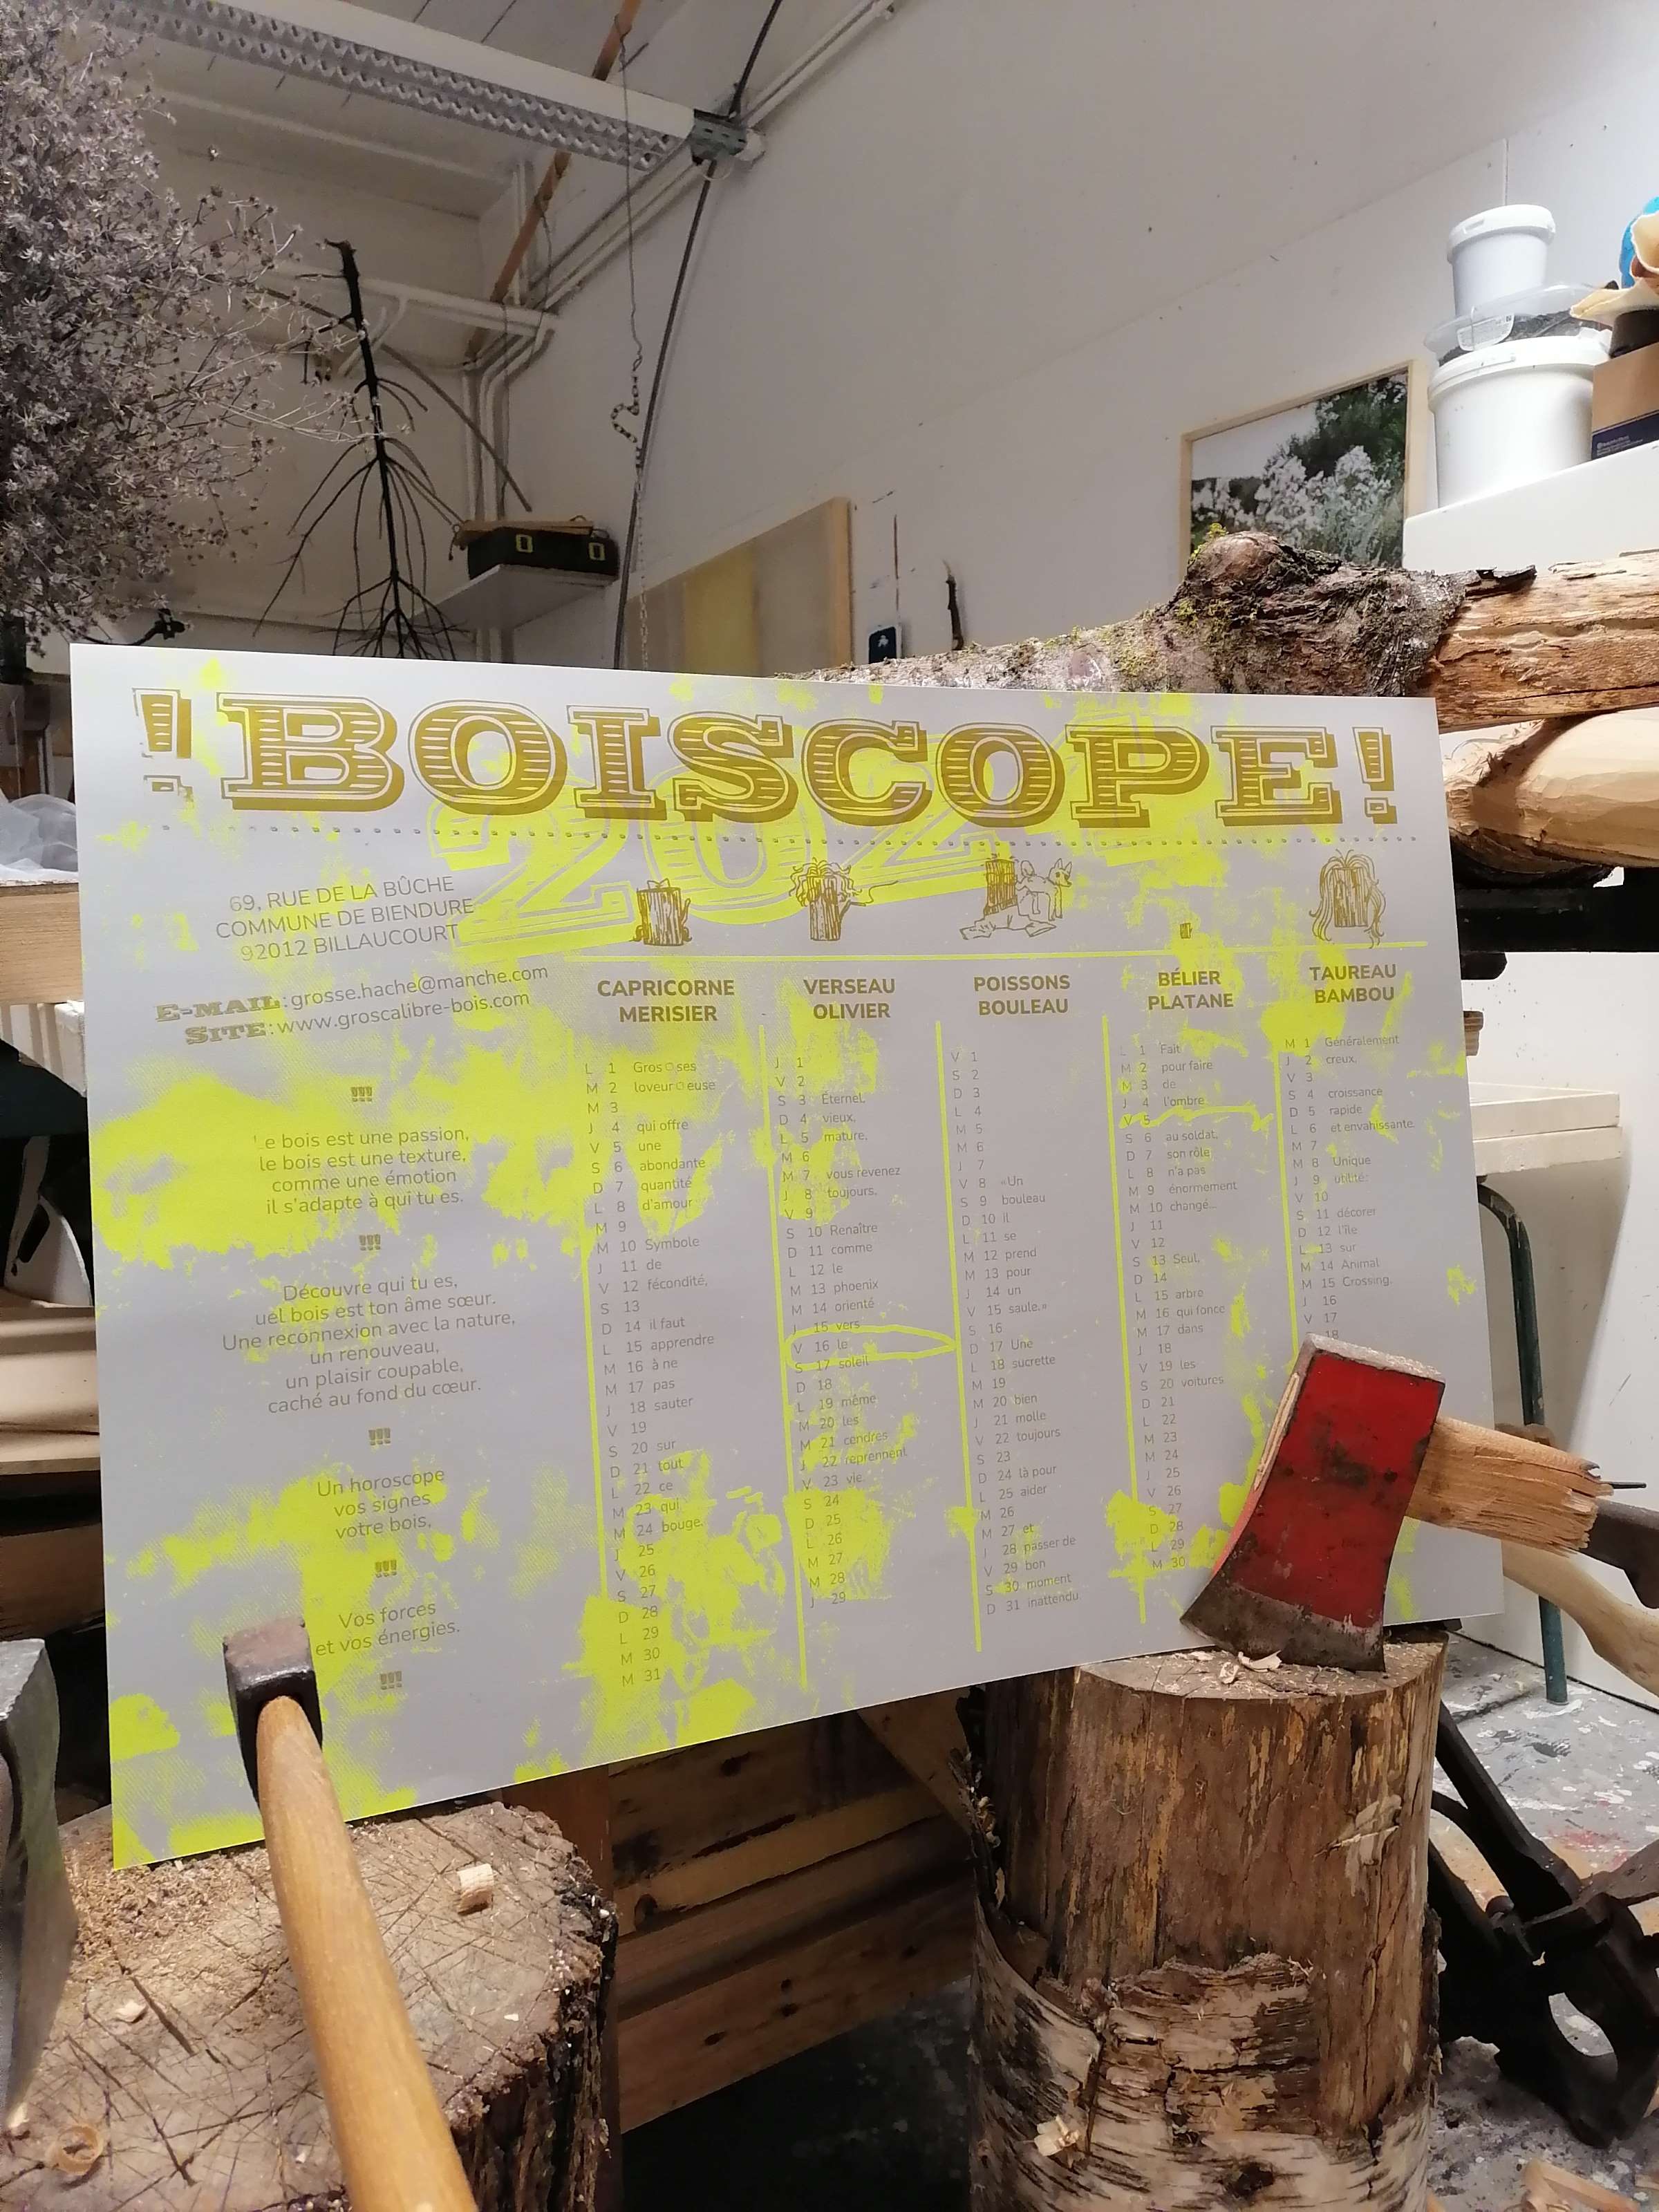 !BOISCOPE!
202
69, RUE DE LA BÛCHE
COMMUNE DE BIENDURE
92012 BILLAUCOURT
E-MAIL: grosse.hache@manche.com
SITE: www.groscalibre-bois.com
!!!
Le bois est une passion,
le bois est une texture,
comme une émotion
il s'adapte à qui tu es.
!!!
Découvre qui tu es,
uel bois est ton âme sœur.
Une reconnexion avec la nature,
un renouveau,
un plaisir coupable,
caché au fond du cœur.
!!!
Un horoscope
vos signes
votre bois,
!!!
Vos forces
et vos énergies.
!!!
CAPRICORNE
MERISIER
L 1 Gros·ses
M 2 loveur·euse
M 3
J 4 qui offre
V 5 une
S 6 abondante
D 7 quantité
L 8 d'amour
M 9
M 10 Symbole
J 11 de
V 12 fécondité,
S 13
D 14 il faut
L 15 apprendre
M 16 à ne
M 17 pas
J 18 sauter
V 19
S 20 sur
D 21 tout
L 22 ce
M 23 qui
M 24 bouge.
J 25
V 26
S 27
D 28
L 29
M 30
M 31
VERSEAU
OLIVIER
J 1
V 2
S 3 Éternel,
D 4 vieux,
L 5 mature,
M 6
M 7 vous revenez
J 8 toujours.
V 9
S 10 Renaître
D 11 comme
L 12 le
M 13 phoenix
M 14 orienté
J 15 vers
V 16 le
S 17 soleil
D 18
L 19 même
M 20 les
M 21 cendres
J 22 reprennent
V 23 vie
S 24
D 25
L 26
M 27
M 28
J 29
POISSONS
BOULEAU
V 1
S 2
D 3
L 4
M 5
M 6
J 7
V 8 «Un
S 9 bouleau
D 10 il
L 11 se
M 12 prend
M 13 pour
J 14 un
V 15 saule.»
S 16
D 17 Une
L 18 sucrette
M 19
M 20 bien
J 21 molle
V 22 toujours
S 23
D 24 là pour
L 25 aider
M 26
M 27 et
J 28 passer de
V 29 bon
S 30 moment
D 31 inattendu
BÉLIER
PLATANE
L 1 Fait
M 2 pour faire
M 3 de
J 4 l'ombre
V 5
S 6 au soldat,
D 7 son rôle
L 8 n'a pas
M 9 énormement
M 10 changé...
J 11
V 12
S 13 Seul,
D 14
L 15 arbre
M 16 qui fonce
M 17 dans
J 18
V 19 les
S 20 voitures
D 21
L 22
M 23
M 24
J 25
V 26
S 27
D 28
L 29
M 30
TAUREAU
BAMBOU
M 1 Généralement
J 2 creux,
V 3
S 4 croissance
D 5 rapide
L 6 et envahissante.
M 7
M 8 Unique
J 9 utilité:
V 10
S 11 décorer
D 12 l'île
L 13 sur
M 14 Animal
M 15 Crossing.
J 16
V 17
18